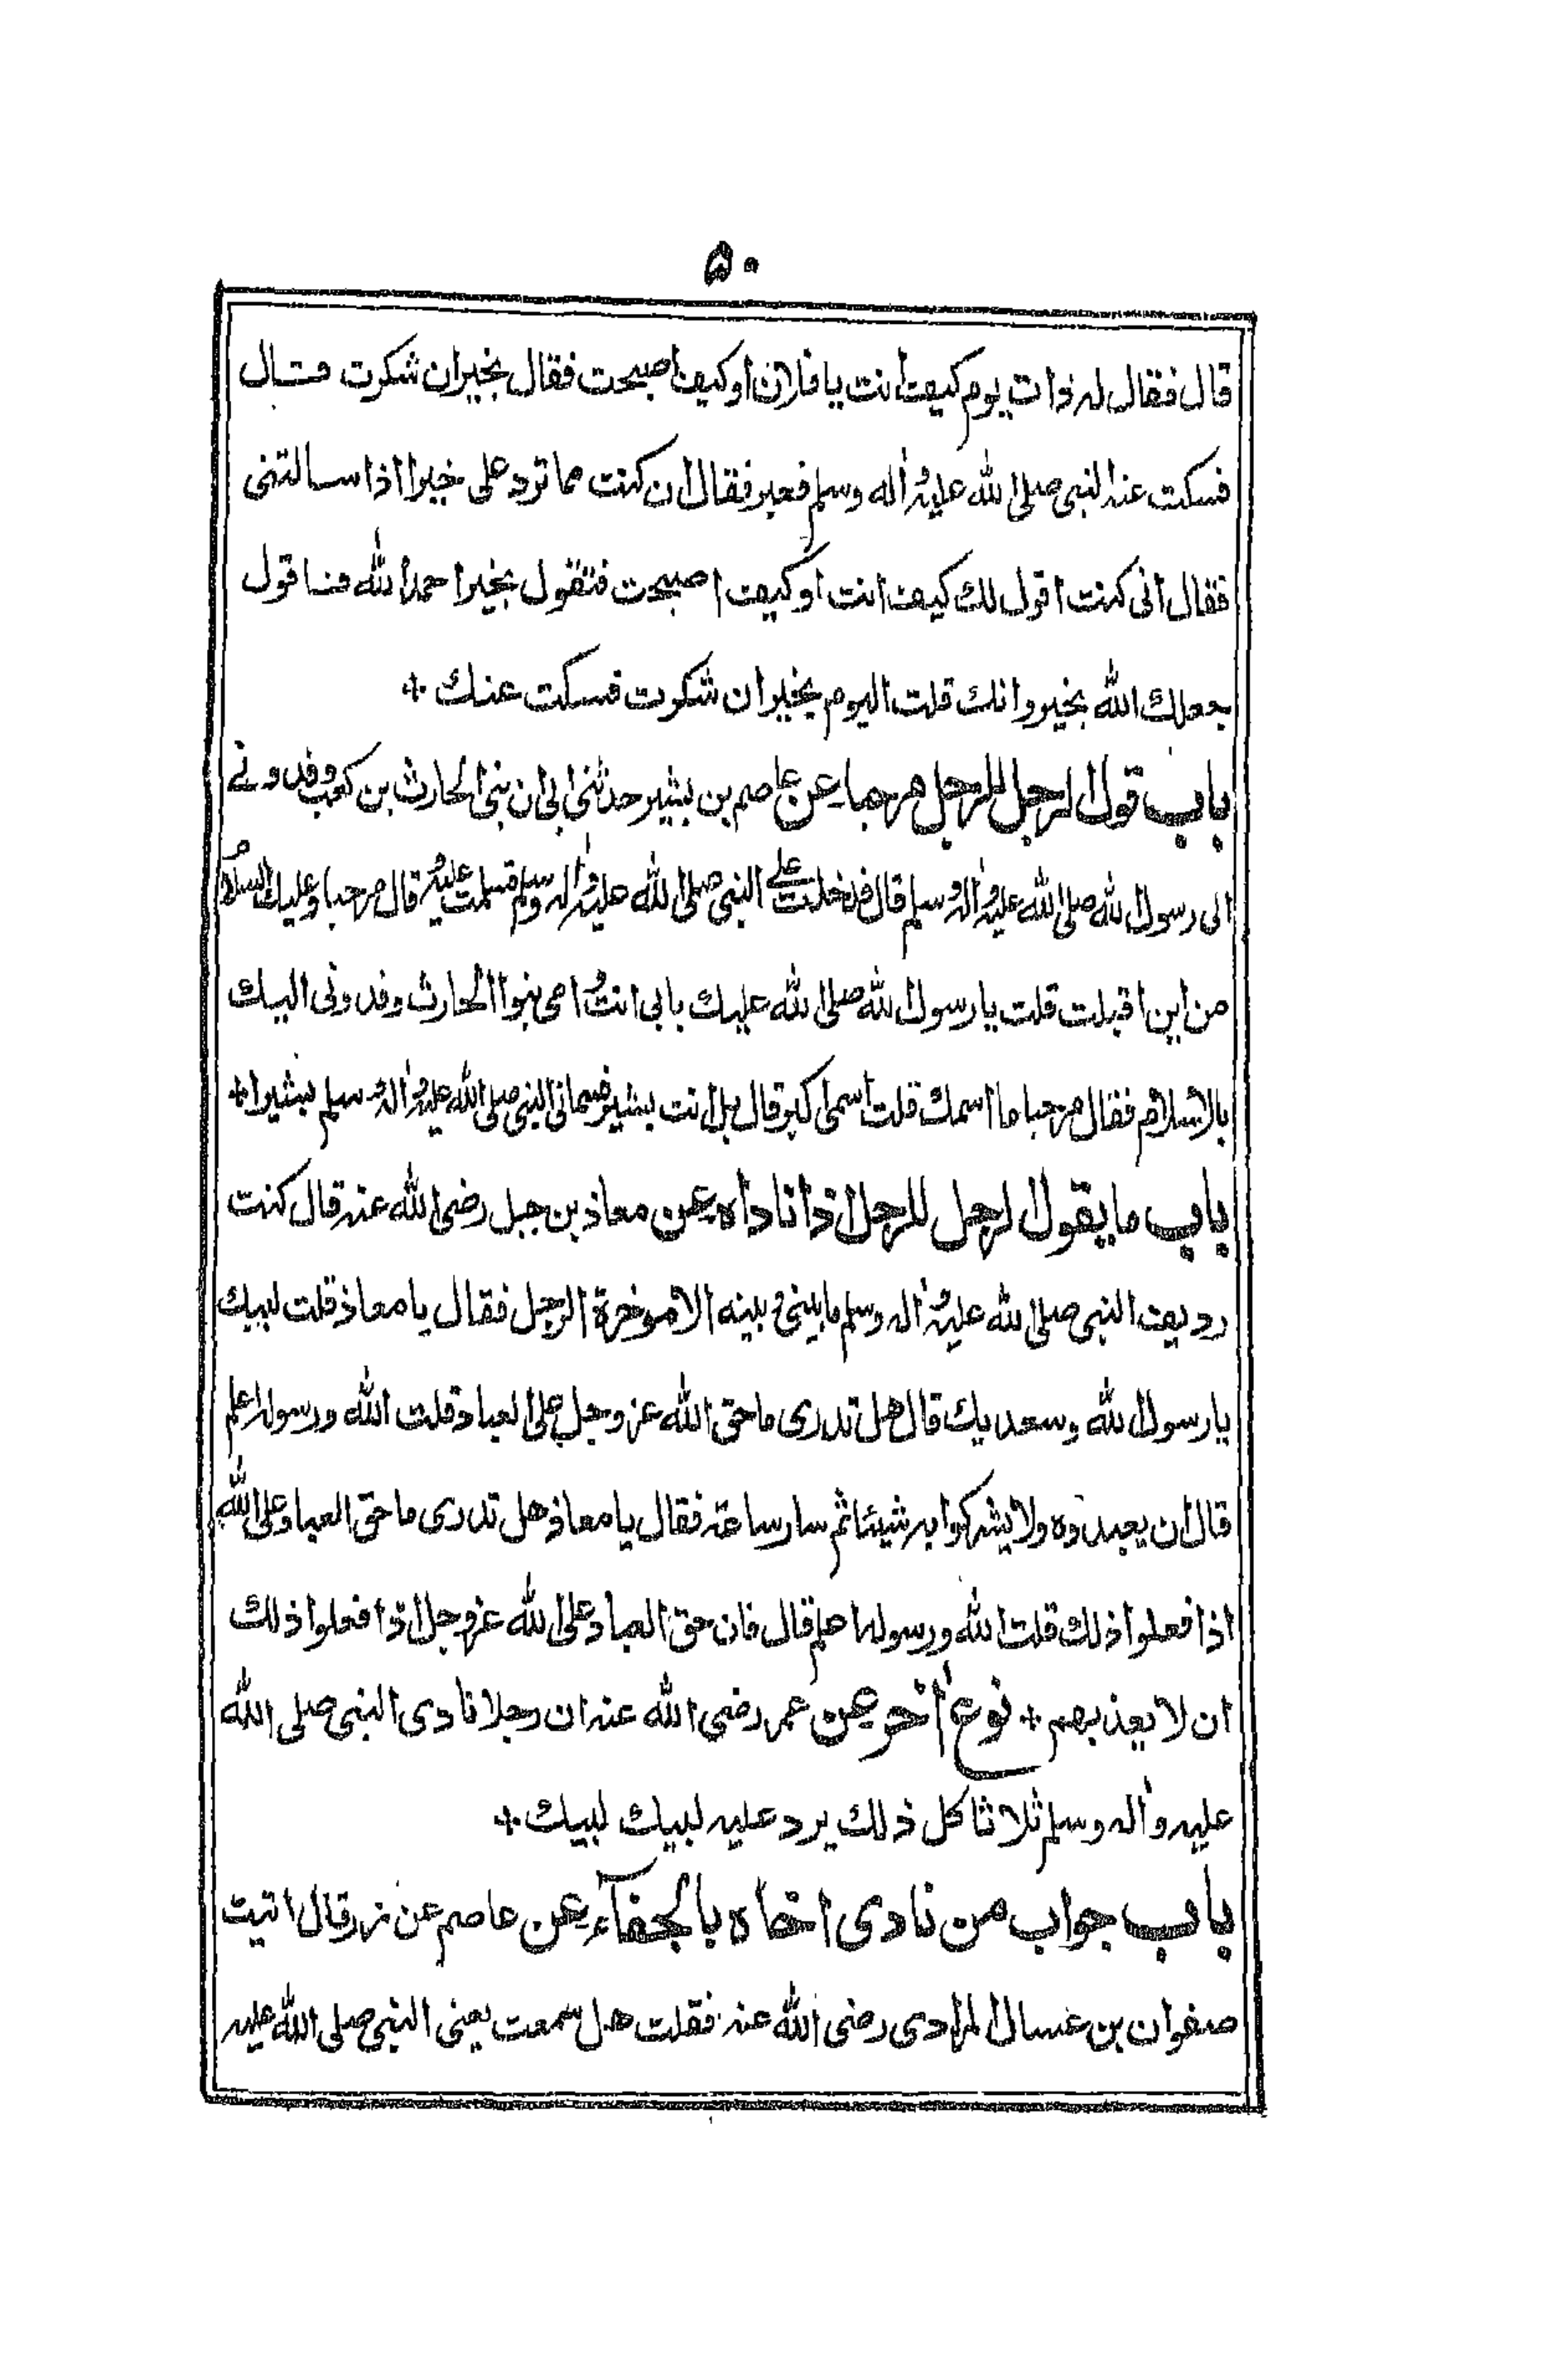 ۵۰
قال فقال له ذات يوم كيف انت يا فلان او كيف اصبحت فقال بخير ان شكرت قال
فسكت عنه النبى صلى الله عليه وآله وسلم فقال ان كنت مما ترد على خيرا اذا سالتنى
فقال انى كنت اقول لك كيف انت او كيف اصبحت فتقول بخير احمد الله فنا قول
جعلك الله بخير وانك قلت اليوم بخير ان شكرت فسكت عنك +
باب قول الرجل للرجل مرحبا عن عاصم بن بشير حدثنى ابى ان بنى الحارث بن كعب وفدونے
الى رسول الله صلى الله عليه وآله وسلم قال فدخلت علے النبى صلى الله عليه وآله وسلم فسلمت عليه قال مرحبا وعليك السلام
من اين اقبلت قلت يا رسول الله صلى الله عليك بابى انت وامى بنوا الحارث وفدونى اليك
بالاسلام فقال مرحبا ما اسمك قلت اسمى اكبر قال بل انت بشير فسمانى النبى صلى الله عليه وآله وسلم بشيرا +
باب ما يقول الرجل للرجل اذا ناداه عن معاذ بن جبل رضى الله عنه قال كنت
رديف النبى صلى الله عليه وآله وسلم ما بينى و بينه الا موخرة الرجل فقال يا معاذ قلت لبيك
يا رسول الله وسعديك قال هل تدرى ما حق الله عز وجل على العباد قلت الله ورسوله اعلم
قال ان يعبدوه ولا يشركوا به شيئا ثم سار ساعة فقال يا معاذ هل تدرى ما حق العباد على الله
اذا فعلوا ذلك قلت الله ورسوله اعلم قال فان حق العباد على الله عز وجل اذا فعلوا ذلك
ان لا يعذبهم + نوع آخر عن عمر رضى الله عنه ان رجلا نادى النبى صلى الله
عليه وآله وسلم ثلاثا كل ذلك يرد عليه لبيك لبيك +
باب جواب من نادى اخاه بالجفآء عن عاصم عن زر قال اتيت
صفوان بن عسال المرادى رضى الله عنه فقلت هل سمعت يعنى النبى صلى الله عليه